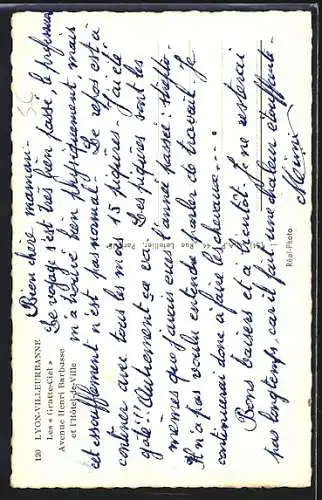 120 LYON-VILLEURBANNE
Les « Gratte-Ciel »
Avenue Henri Barbusse
et l'Hôtel-de-Ville
Bien chère maman.
Le voyage s'est très bien passé, le professeur
m'a trouvé bien physiquement, mais
cet essoufflement n'est pas normal. Le repos est à
continuer avec tous les mois 15 piqûres. J'ai été
gaté!!! Autrement ça va. Les piqûres sont les
mêmes que j'avais eues l'année passée.
Il n'a pas voulu entendre parler de travail. Je
continuerai donc à faire les chevaux...
Bons baisers et à bientôt. Je ne resterai
pas longtemps, car il fait une chaleur étouffante.
Rue Letellier, Par
Réal-Photo